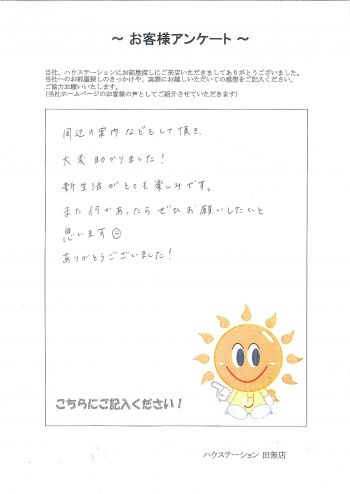 ～ お客様アンケート ～
当社、ハウステーションにお部屋探しにご来店いただきましてありがとうございました。
当社へのお部屋探しのきっかけや、実際にお越しいただいての感想をご記入ください。
ご協力お願いいたします。
(当社ホームページのお客様の声としてご紹介させていただきます)
周辺の案内などもして頂き、
大変助かりました！
新生活がとても楽しみです。
また何かあったらぜひお願いしたいと
思います
ありがとうございました！
こちらにご記入ください！
ハウステーション 田無店